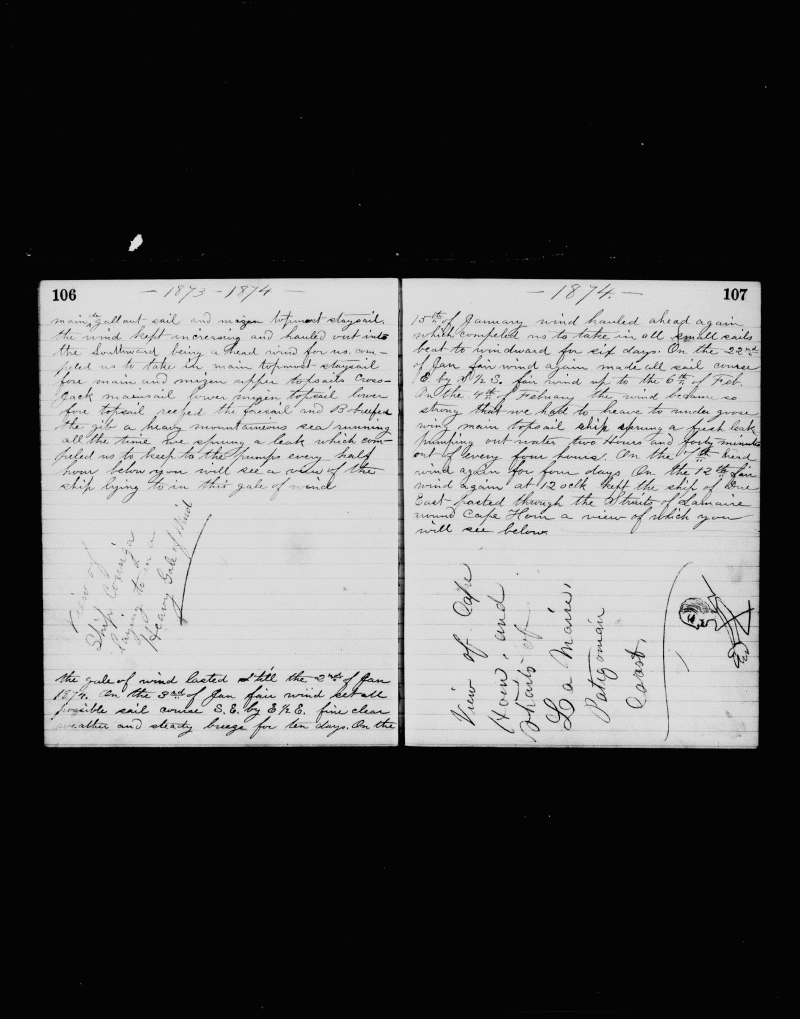 106
— 1873 - 1874 —
main to gallant sail and mizen topmost staysail.
the wind kept increasing and hauled out into
the Southward being a head wind for us. com-
peled us to take in, main topmost staysail
fore main and mizen upper topsails Cross-
Jack mainsail lower mizen topsail lower
fore topsail reefed the foresail and
the gib a heavy mountaineous sea running
all the time. we sprung a leak which com-
peled us to keep to the pumps every half
hour below you will see a view of the
ship lying to in this gale of wind
View of
Ship
lying to in a
Heavy Gale of Wind
the gale of wind lasted till the 2nd of Jan
1874. On the 3rd of Jan fair wind set all
possible sail course S.E. by E ½ E. fine clear
weather and steady breeze for ten days. On the
— 1874. —
107
15th of January wind hauled ahead again
which compeled us to take in all small sails
beat to windward for six days. On the 22nd
of Jan fair wind again made all sail course
E by S ½ S. fair wind up to the 6th of Feb.
On the 4th of Febuary the wind became so
strong that we hatt to heave to under goose
wing main topsail ship sprung a fresh leak
pumping out water two Hours and forty minutes
out of every four hours. On the 7th head
wind again for four days On the 12th fair
wind again at 12 oclk kept the ship of Due
East pasted through the Straits of Lamaire
round Cape Horn a view of which you
will see below.
View of Cape
Horn, and
Straits of
La Maire,
Patigonian
Coast,